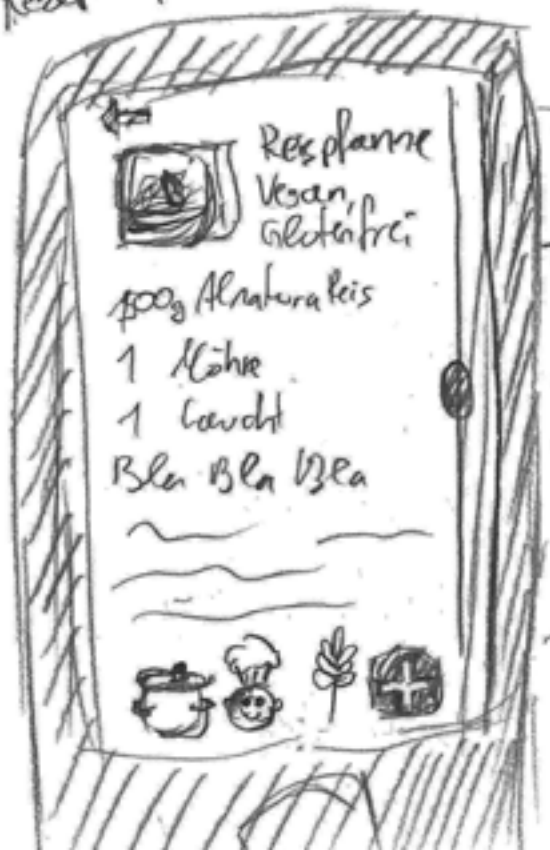 Reispfanne
Vegan,
Glutenfrei
500g Alnatura Reis
1 Möhre
1 Lauch
Bla Bla Bla